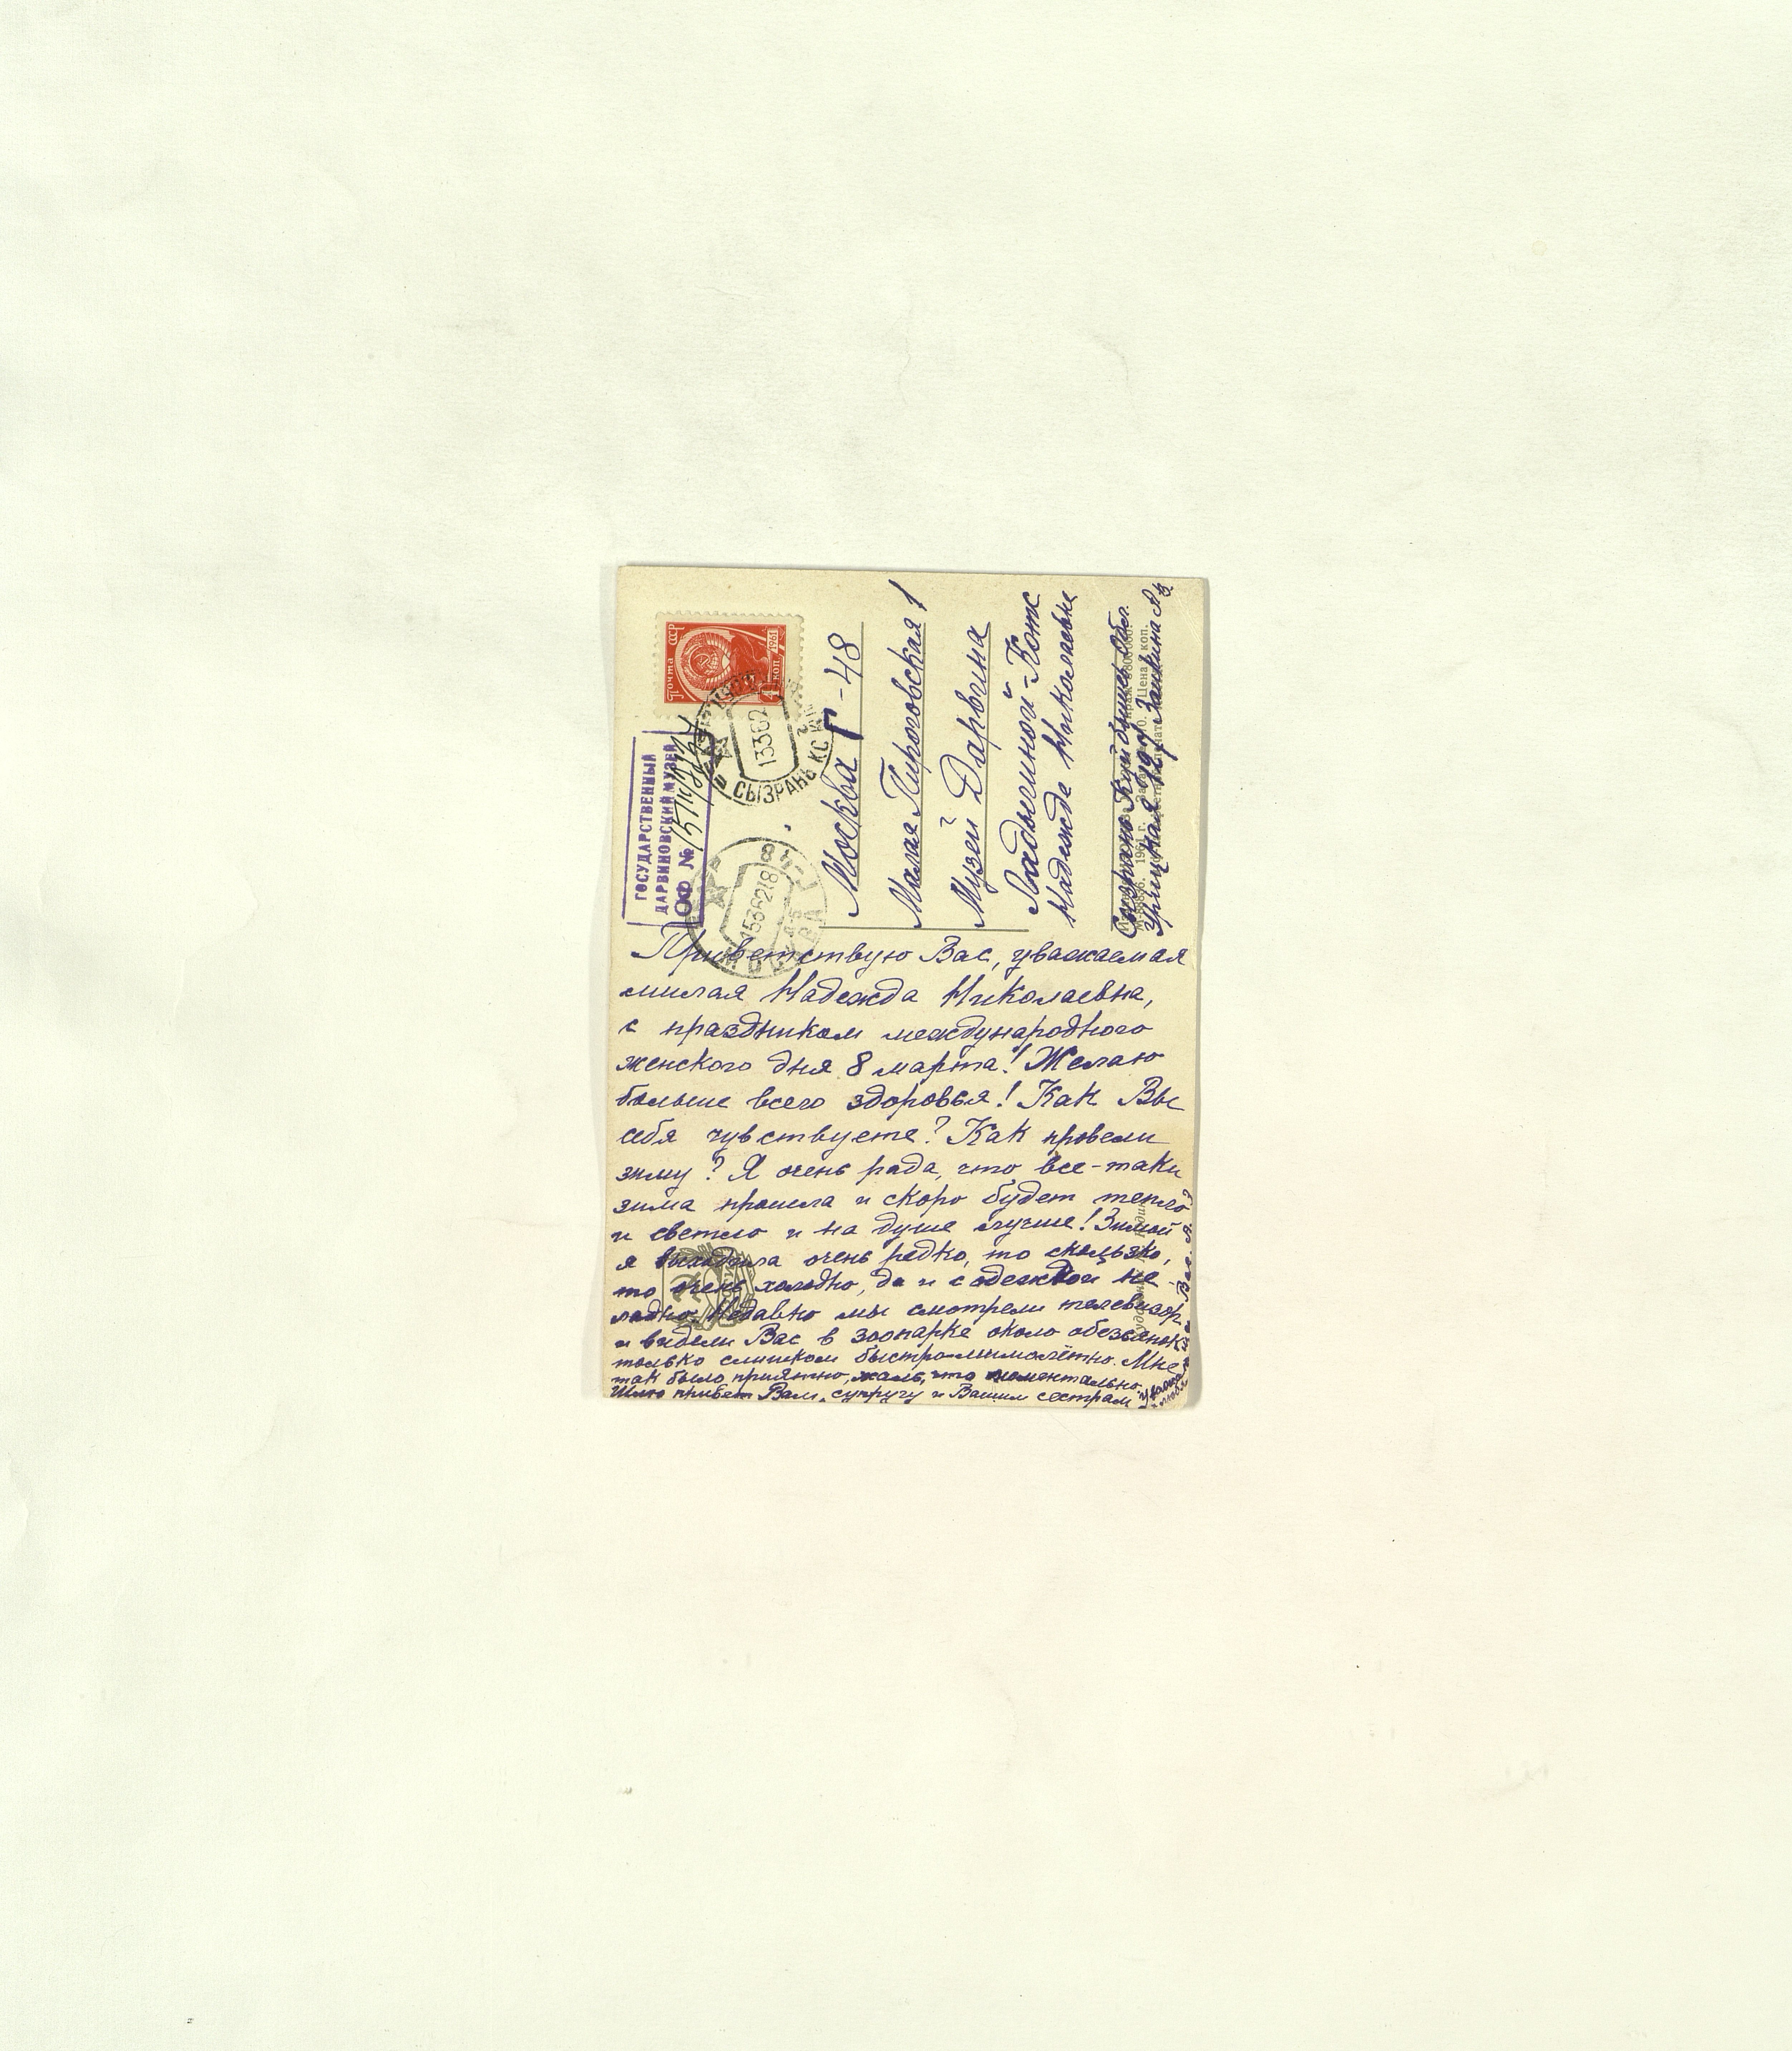 Почта СССР
1961
4 коп
ГОСУДАРСТВЕННЫЙ
ДАРВИНОВСКИЙ МУЗЕЙ
ОФ №
СЫЗРАНЬ
13362
МОСКВА
1536218
Москва Г-48
Малая Пироговская 1
Музей Дарвина
Ладыгиной-Котс
Надежде Николаевне
Сызрань Куйбышев. Обл.
Урицкая
1961 г. Цена коп.
Приветствую Вас, уважаемая
милая Надежда Николаевна,
с праздником международного
женского дня 8 марта! Желаю
больше всего здоровья! Как Вы
себя чувствуете? Как провели
зиму? Я очень рада, что все-таки
зима прошла и скоро будет тепло
и светло и на душе лучше! Зимой
я выходила очень редко, то скользко,
то очень холодно, да и с одеждой не-
ладно. Недавно мы смотрели телевизор
и видели Вас в зоопарке около обезьянок
только слишком быстро-мимолётно. Мне
так было приятно, жаль, что моментально.
Шлю привет Вам, супругу и Вашим сестрам